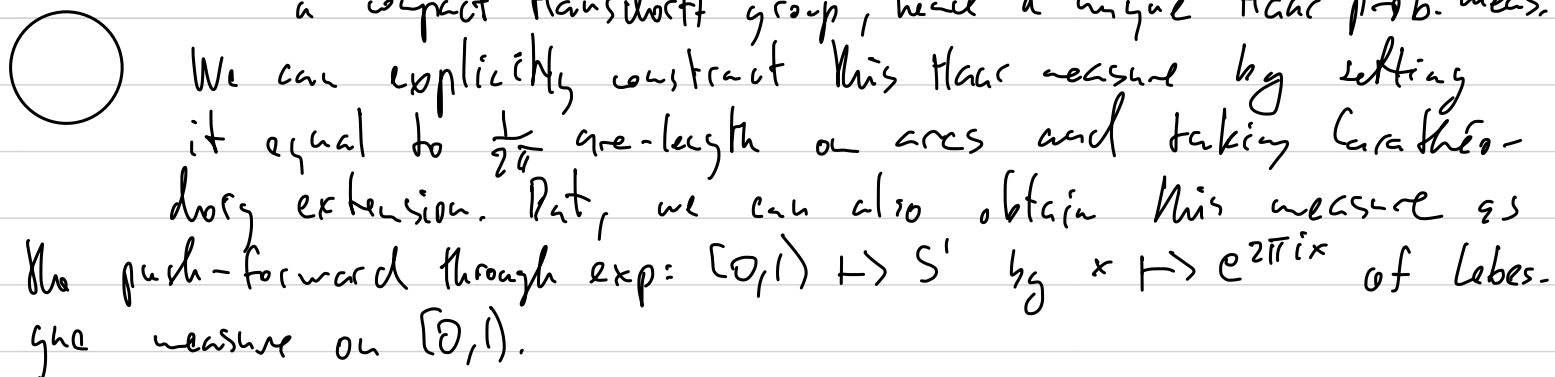 a compact Hausdorff group, hence a unique Haar prob. meas.
We can explicitly construct this Haar measure by setting
it equal to 1/2π arc-length on arcs and taking Carathéo-
dory extension. But, we can also obtain this measure as
the push-forward through exp: [0,1) ↦ S¹ by x ↦ e^{2πix} of Lebes-
gue measure on [0,1).